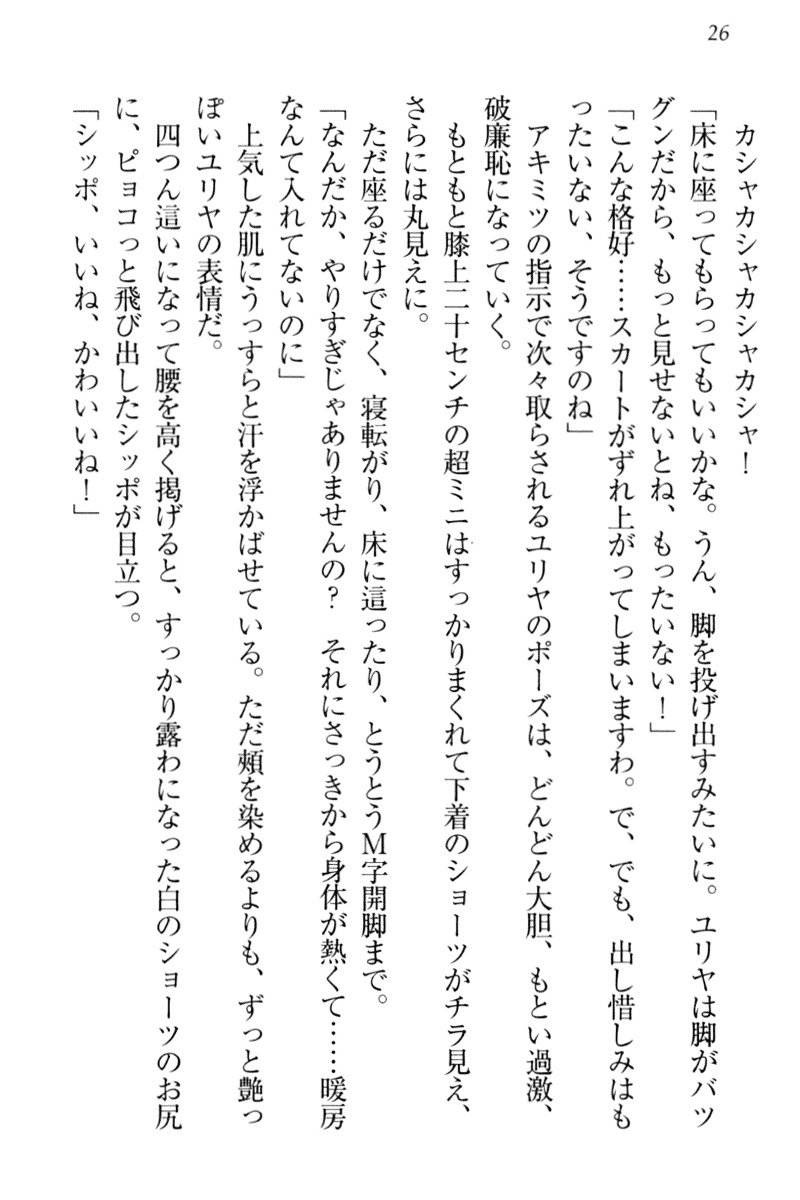 26
カシャカシャカシャカシャ！
「床に座ってもらってもいいかな。うん、脚を投げ出すみたいに。ユリヤは脚がバツ
グンだから、もっと見せないとね、もったいない！」
「こんな格好……スカートがずれ上がってしまいますわ。で、でも、出し惜しみはも
ったいない、そうですのね」
アキミツの指示で次々取らされるユリヤのポーズは、どんどん大胆、もとい過激、
破廉恥になっていく。
もともと膝上二十センチの超ミニはすっかりまくれて下着のショーツがチラ見え、
さらには丸見えに。
ただ座るだけでなく、寝転がり、床に這ったり、とうとうＭ字開脚まで。
「なんだか、やりすぎじゃありませんの？　それにさっきから身体が熱くて……暖房
なんて入れてないのに」
上気した肌にうっすらと汗を浮かばせている。ただ頬を染めるよりも、ずっと艶っ
ぽいユリヤの表情だ。
四つん這いになって腰を高く掲げると、すっかり露わになった白のショーツのお尻
に、ピョコっと飛び出したシッポが目立つ。
「シッポ、いいね、かわいいね！」